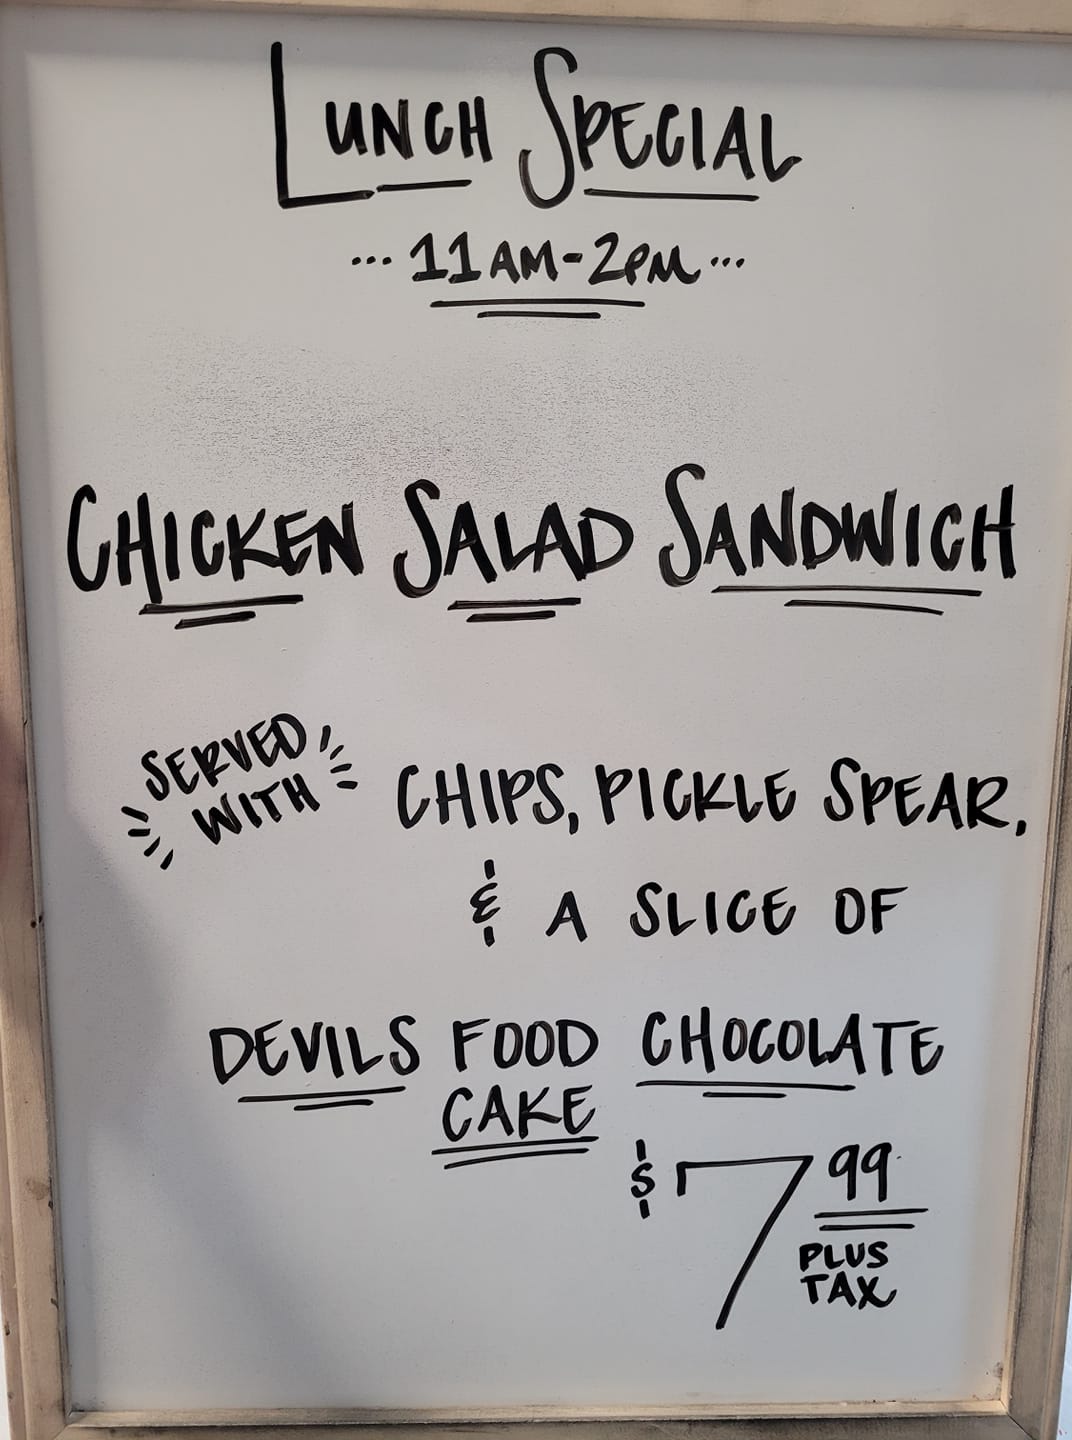 LUNCH SPECIAL
...11AM-2PM...
CHICKEN SALAD SANDWICH
SERVED
WITH
CHIPS, PICKLE SPEAR,
& A SLICE OF
DEVILS FOOD CHOCOLATE
CAKE
$7 99
PLUS
TAX